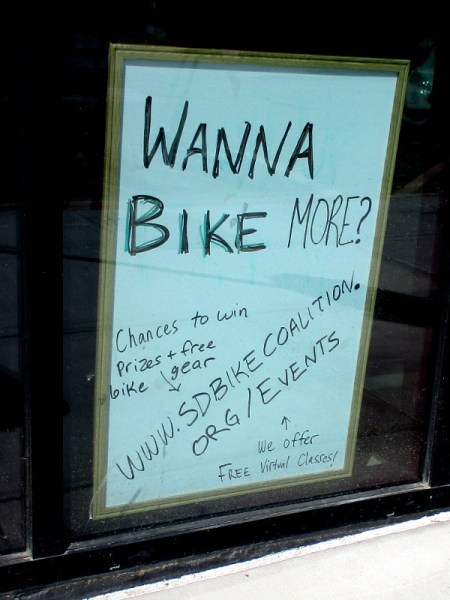 WANNA
BIKE MORE?
Chances to win
Prizes + free
bike gear
WWW.SDBIKECOALITION.
ORG/EVENTS
We offer
FREE Virtual Classes!